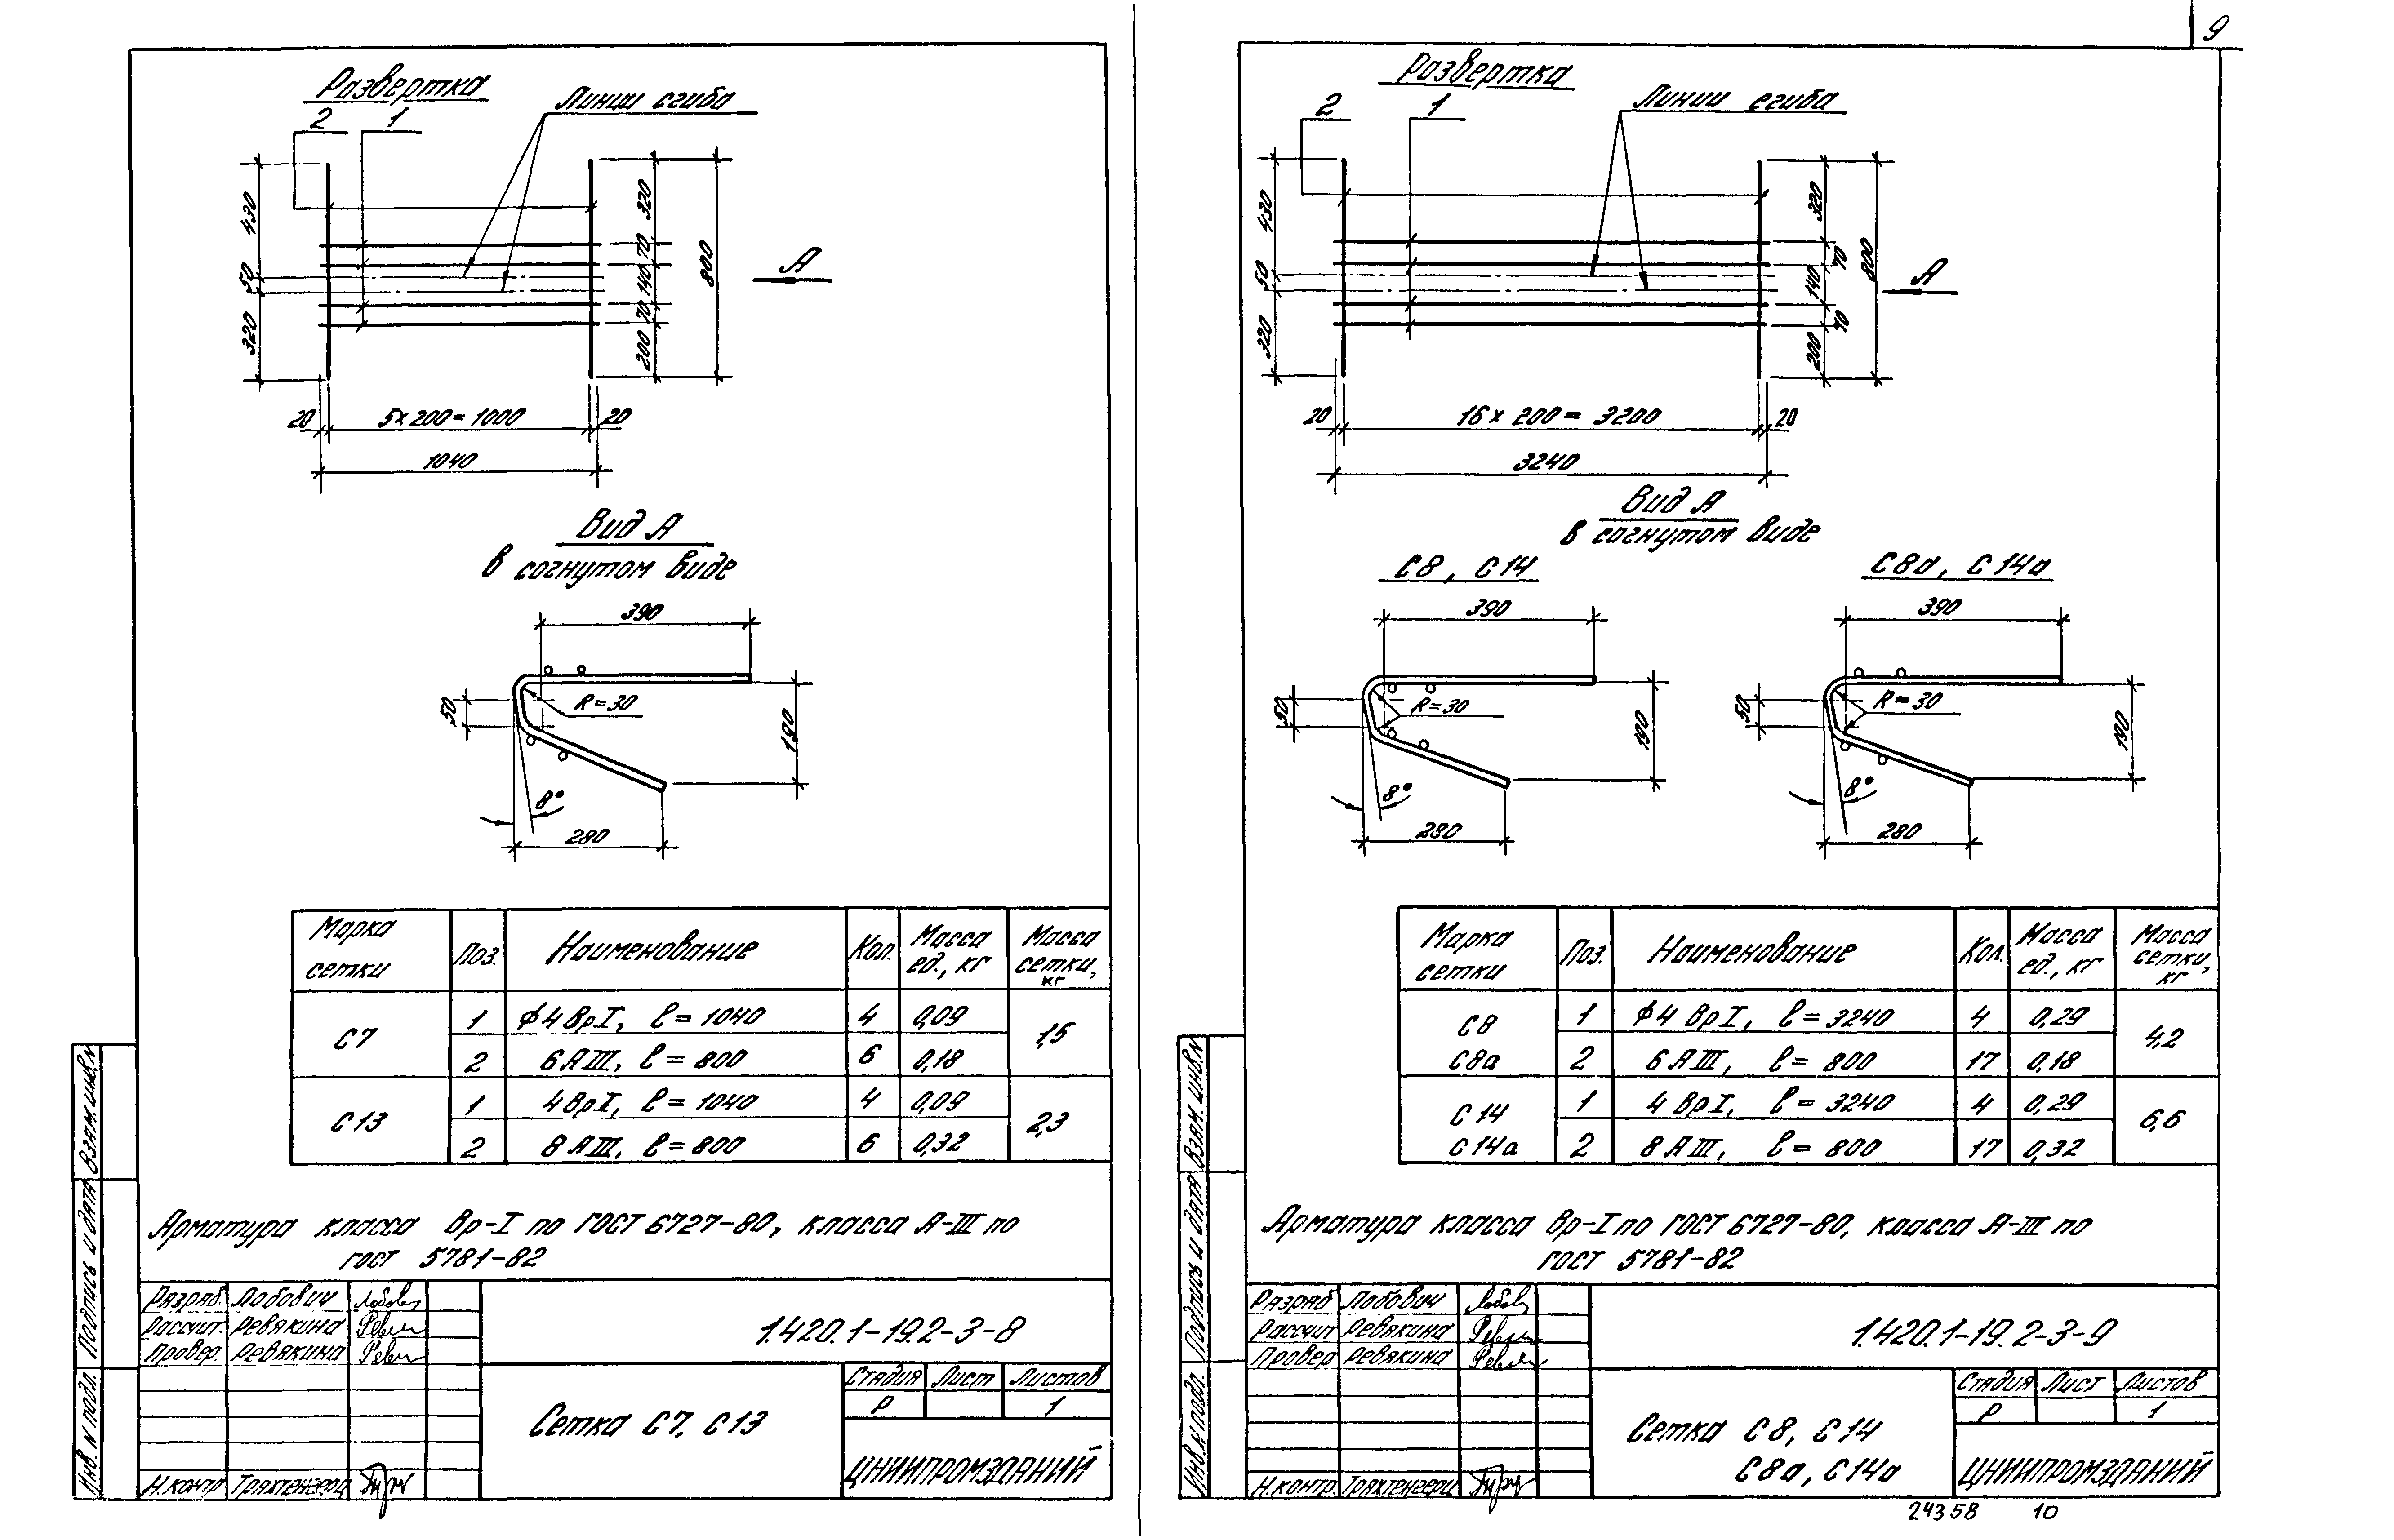 9
Развертка
Линии сгиба
2 1
430
50
320
320
70
140
70
200
800
А
20 5×200=1000 20
1040
Вид А
в согнутом виде
390
R=30
50
190
8°
280
Марка сетки Поз. Наименование Кол. Масса ед., кг Масса сетки, кг
С7 1 ϕ4 ВрI, ℓ=1040 4 0,09 1,5
2 6 АIII, ℓ=800 6 0,18
С13 1 4 ВрI, ℓ=1040 4 0,09 2,3
2 8 АIII, ℓ=800 6 0,32
Арматура класса Вр-I по ГОСТ 6727-80, класса А-III по
ГОСТ 5781-82
Разраб. Лобович
Рассчит. Ревякина
Провер. Ревякина
Н.контр
1.420.1-19.2-3-8
Сетка С7, С13
Стадия Лист Листов
Р 1
ЦНИИПРОМЗДАНИЙ
Инв. N подл. Подпись и дата Взам. инв. N
Развертка
Линии сгиба
2 1
430
50
320
320
70
140
70
200
800
А
20 16×200=3200 20
3240
Вид А
в согнутом виде
С8, С14
390
R=30
50
190
8°
280
С8а, С14а
390
R=30
50
190
8°
280
Марка сетки Поз. Наименование Кол. Масса ед., кг Масса сетки, кг
С8 С8а 1 ϕ4 ВрI, ℓ=3240 4 0,29 4,2
2 6 АIII, ℓ=800 17 0,18
С14 С14а 1 4 ВрI, ℓ=3240 4 0,29 6,6
2 8 АIII, ℓ=800 17 0,32
Арматура класса Вр-I по ГОСТ 6727-80, класса А-III по
ГОСТ 5781-82
Разраб Лобович
Рассчит Ревякина
Провер Ревякина
Н.контр.
1.420.1-19.2-3-9
Сетка С8, С14
С8а, С14а
Стадия Лист Листов
Р 1
ЦНИИПРОМЗДАНИЙ
Инв. N подл. Подпись и дата Взам. инв. N
24358 10